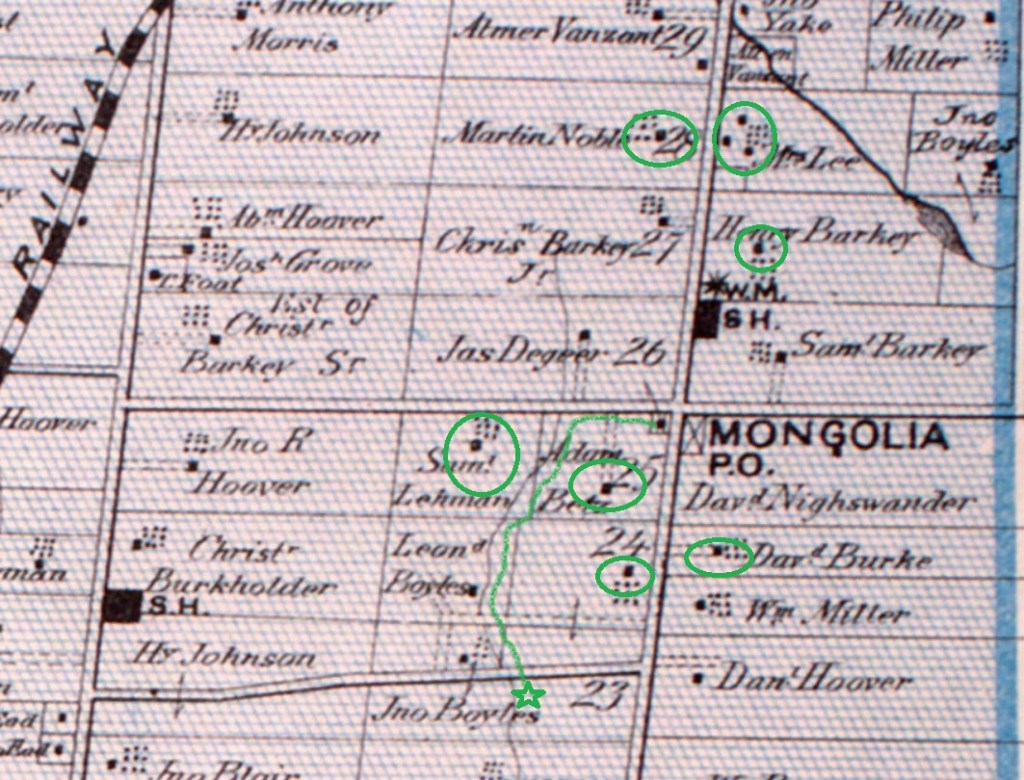 Anthony
Morris
Atmer Vanzant 29
Jno
Yake
Philip
Miller
Vanzant
RAILWAY
Hy Johnson
Martin Noble 28
Mrs Lee
Jno
Boyles
Abm Hoover
Josh Grove
T. Foot
Chrisn Barkey 27
Jr
Henry Barkey
W.M.
S.H.
Est of
Christr
Barkey Sr
Jas Degeer 26
Saml Barkey
Hoover
Jno R
Hoover
Saml
Lehman
Adam 25
Betz
MONGOLIA
P.O.
Davd Nighswander
Christr
Burkholder
S.H.
Leond
Boyles
24
Davd Burke
Wm Miller
Hy Johnson
Danl Hoover
Jno Boyles
23
Jno Blair